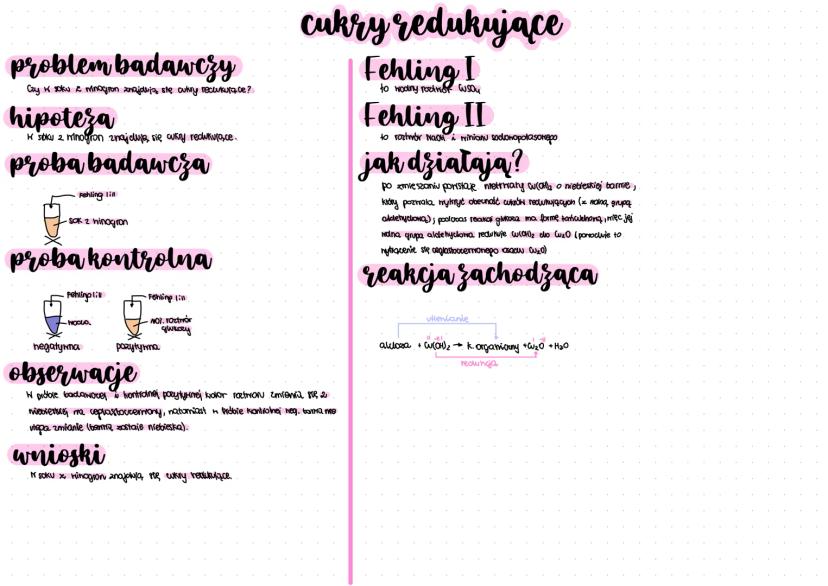 cukry redukujące
problem badawczy
Czy w soku z winogron znajdują się cukry redukujące?
hipoteza
W soku z winogron znajdują się cukry redukujące.
proba badawcza
Fehling I i II
sok z winogron
proba kontrolna
Fehling I i II
woda
negatywna
Fehling I i II
roztwór
glukozy
pozytywna
obserwacje
W próbie badawczej i kontrolnej pozytywnej kolor roztworu zmienia się z
niebieskiej na ceglastoczerwony, natomiast w próbie kontrolnej neg. barwa nie
ulega zmianie (barwa zostaje niebieska).
wnioski
W soku z winogron znajdują się cukry redukujące.
Fehling I
to wodny roztwór CuSO₄
Fehling II
to roztwór NaOH i winianu sodowopotasowego
jak działają?
po zmieszaniu powstaje nietrwały Cu(OH)₂ o niebieskiej barwie,
który pozwala wykryć obecność cukrów redukujących (z wolną grupą
aldehydową); podczas reakcji glukoza ma formę łańcuchową, więc jej
wolna grupa aldehydowa redukuje Cu(OH)₂ do Cu₂O (powoduje to
wytrącenie się ceglastoczerwonego osadu Cu₂O)
reakcja zachodząca
utlenianie
aldoza + Cu(OH)₂ → k. organiczny + Cu₂O + H₂O
redukcja